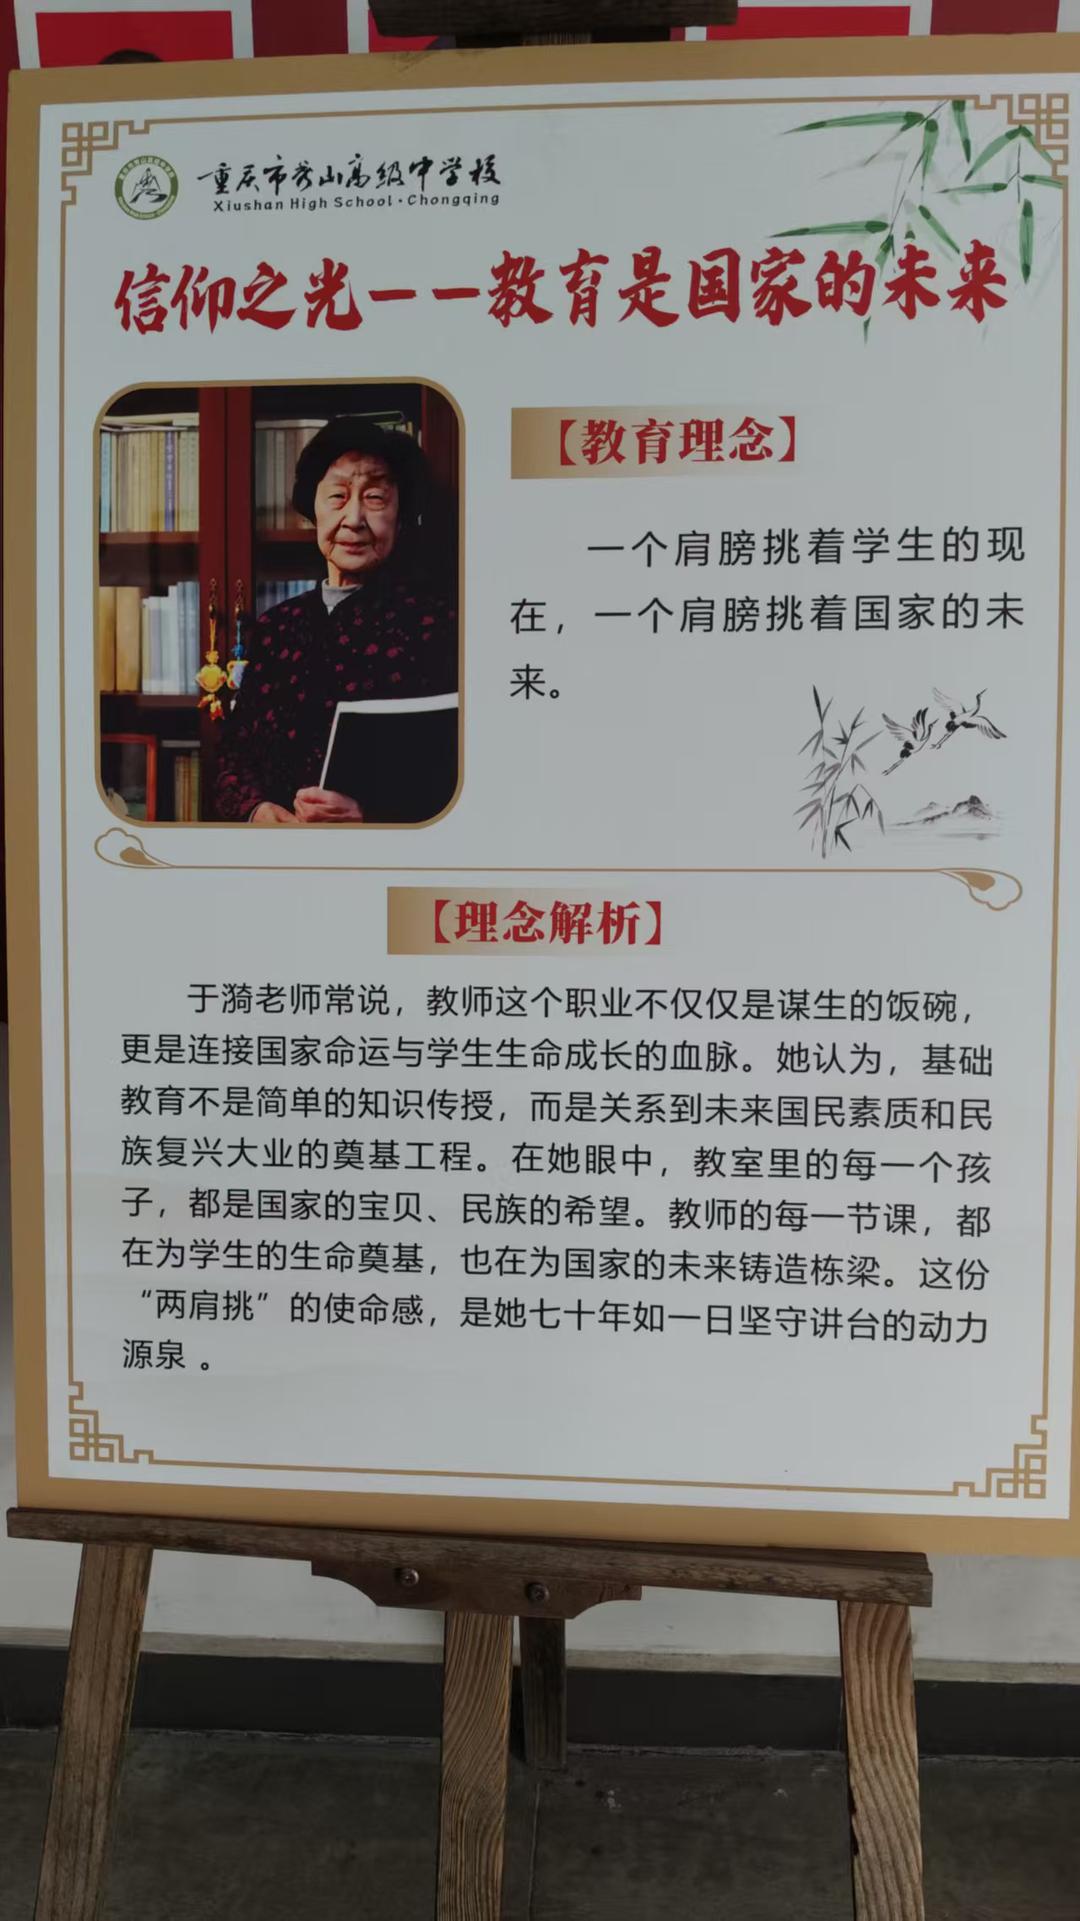 重庆市秀山高级中学校
Xiushan High School·Chongqing
信仰之光——教育是国家的未来
【教育理念】
一个肩膀挑着学生的现
在，一个肩膀挑着国家的未
来。
【理念解析】
于漪老师常说，教师这个职业不仅仅是谋生的饭碗，
更是连接国家命运与学生生命成长的血脉。她认为，基础
教育不是简单的知识传授，而是关系到未来国民素质和民
族复兴大业的奠基工程。在她眼中，教室里的每一个孩
子，都是国家的宝贝、民族的希望。教师的每一节课，都
在为学生的生命奠基，也在为国家的未来铸造栋梁。这份
“两肩挑”的使命感，是她七十年如一日坚守讲台的动力
源泉 。